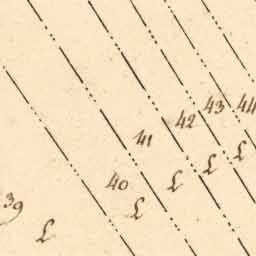 39
40
41
42
43
44
L
L
L
L
L